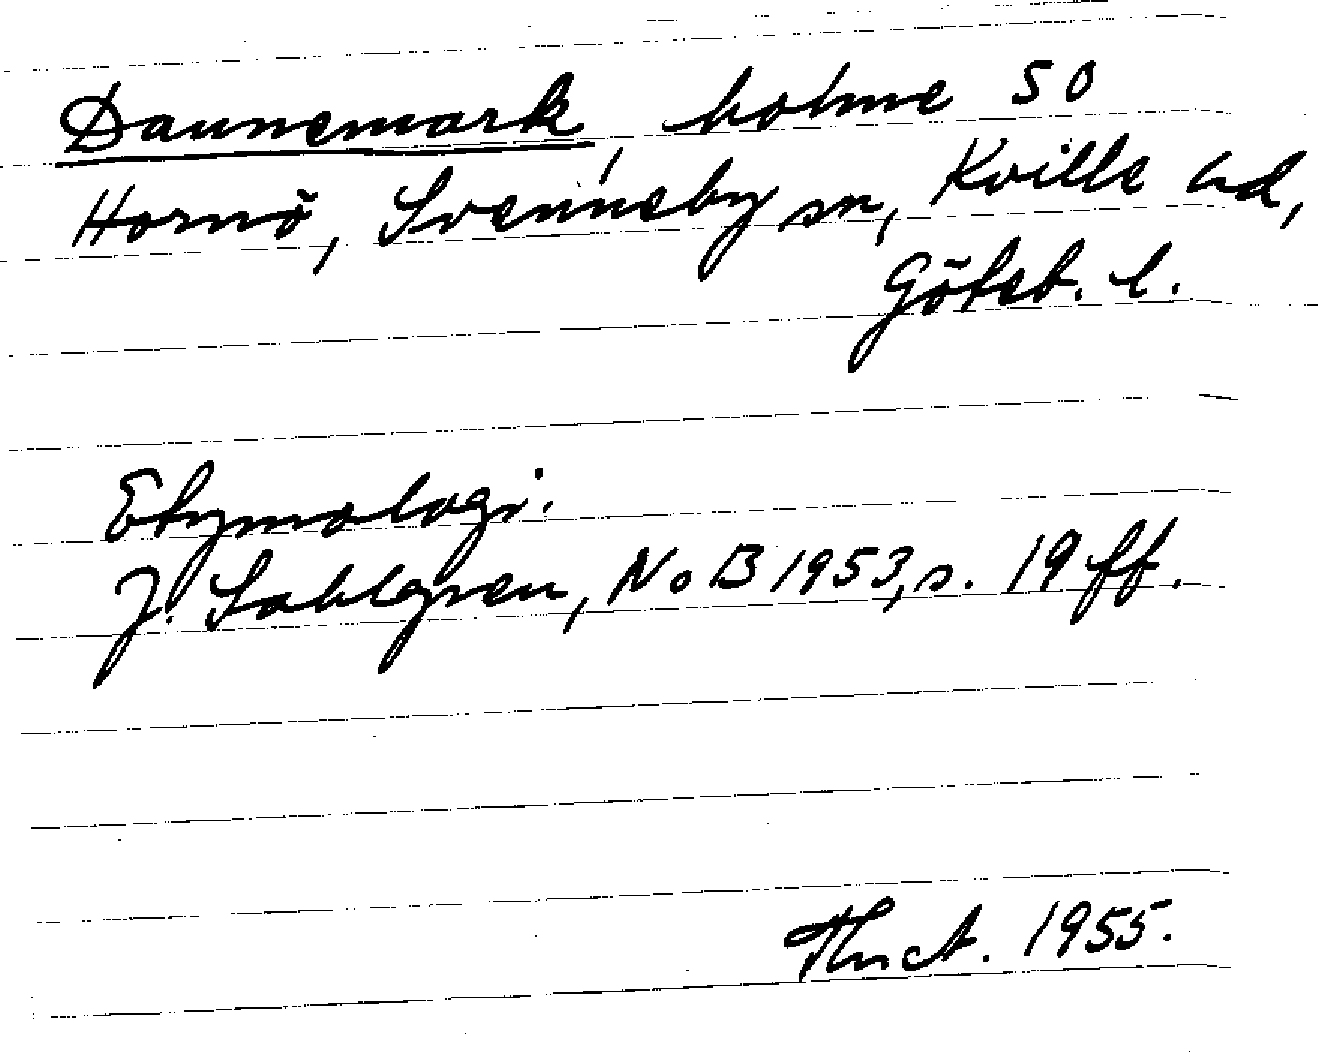 Dannemark, holme SO
Hornö, Svenneby sn, Kville hd,
Göteb. l.
Etymologi.
J. Sahlgren, NoB 1953, s. 19 ff.
1955.